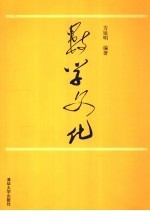 方延明 编著
数学文化
清华大学出版社